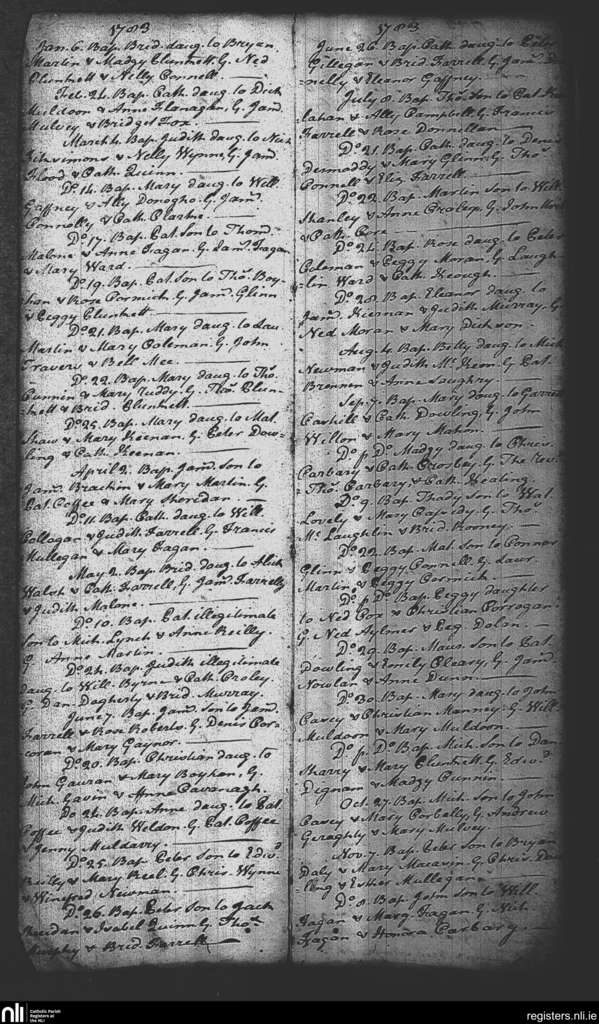 1783
Jan. 6. Bap. Brid. daug. to Bryan
Martin & Madgy Clunhett. G. Ned
Clunhett & Nelly Connell.
Feb. 24. Bap. Cath. daug. to Dick
Muldoon & Anne Flanagan. G. Jam.
Mulvey & Bridget Fox.
March 4. Bap. Judith daug. to Nich
Fitzsimons & Nelly Wynne. G. Jam.
Flood & Cath. Quinn.
Do. 14. Bap. Mary daug. to Will.
Gaffney & Ally Donogho. G. Jam.
Connolly & Cath. Clarke.
Do. 17. Bap. Pat. Son to Thom.
Malone & Anne Fagan. G. Jam. Fagan
& Mary Ward.
Do. 19. Bap. Pat. Son to Tho. Boy-
han & Rose Cormick. G. Jam. Glinn
& Peggy Clunhett
Do. 21. Bap. Mary daug. to Lau.
Martin & Mary Coleman. G. John
Travers & Bett Mee.
Do. 22. Bap. Mary daug. to Tho.
Cunnin & Mary Cuddy. G. Tho. Clun-
hett & Brid. Clunhett.
Do. 25. Bap. Mary daug. to Mat.
Shaw & Mary Keenan. G. Peter Dow-
ling & Cath. Keenan.
April 2. Bap. Jam. Son to
Jam. Brackin & Mary Martin. G.
Pat. Coffee & Mary Sheredan.
Do. 11. Bap. Cath. daug. to Will.
Callagan & Judith Farrell. G. Francis
Mullegan & Mary Fagan.
May 2. Bap. Brid. daug. to Mich
Walsh & Cath. Farrell. G. Jam. Farrelly
& Judith Malone.
Do. 10. Bap. Pat. illegitimate
Son to Mich. Lynch & Anne Reilly.
G. Anne Martin.
Do. 24. Bap. Judith illegitimate
daug. to Will. Byrne & Cath. Croley.
G. Dan. Dogherty & Brid. Murray.
June 7. Bap. Jam. Son to Jam.
Farrell & Rose Roberts. G. Denis Cor-
coran & Mary Gaynor.
Do. 20. Bap. Christian daug. to
John Gauran & Mary Boyhan. G.
Mich. Gavin & Anne Cavanagh.
Do. 24. Bap. Anne daug. to Pat
Coffee & Judith Weldon. G. Pat. Coffee
& Jenny Muldarry.
Do. 25. Bap. Peter Son to Edwd.
Reilly & Mary Keel. G. Chris. Wynne
& Winefred Newman
Do. 26. Bap. Peter Son to Jack
Reedan & Isabel Quinn. G. Thos.
Murphy & Brid. Farrell
1783
June 26. Bap. Cath. daug. to Peter
Gillegan & Brid. Farrell. G. Jam.
nelly & Eleanor Gaffney.
July 8. Bap. Tho. Son to Pat.
lahan & Ally Campbell. G. Francis
Farrell & Rose Donnellan
Do. 21. Bap. Cath. daug. to Denis
Dermoddy & Mary Glenn. G. Tho.
Connell & Eliz. Farrell.
Do. 22. Bap. Martin Son to Will.
Shanley & Anne Croley. G. John
& Cath. Core
Do. 24. Bap. Rose daug. to Peter
Coleman & Peggy Moran. G. Laugh-
lin Ward & Cath. Keough.
Do. 28. Bap. Eleanor daug. to
Jam. Kiernan & Judith Murray. G.
Ned Moran & Mary Dickson.
Aug. 4. Bap. Billy daug. to Mich
Newman & Judith McKeon. G. Pat.
Brennen & Anne Saughry
Sep. 7. Bap. Mary daug. to Garrett
Cashill & Cath. Dowling. G. John
Wilson & Mary Mahon.
Do. p. Do. Madgy daug. to Chris.
Carbary & Cath. Crosbey. G. The Revd.
Tho. Carbary & Cath. Keating.
Do. 9. Bap. Thady Son to Wat.
Lovely & Mary Casidy. G. Tho.
McLaughlin & Brid. Rooney.
Do. 22. Bap. Mat. Son to Connor
Glinn & Peggy Connell. G. Laur.
Martin & Peggy Cormick.
Do. p. Do. Bap. Peggy daughter
to Ned Cox & Christian Corrogan.
G. Ned Aylmer & Peg. Dolan.
Do. 29. Bap. Maur. Son to Pat.
Dowling & Emily Cleary. G. Jam.
Nowlan & Anne Dunn.
Do. 30. Bap. Mary daug. to John
Casey & Christian Manney. G. Will.
Muldoon & Mary Muldoon.
Do. p. Do. Bap. Mich. Son to Dan.
Sharry & Mary Clunhett. G. Edwd.
Dignan & Madgy Cunnin
Oct. 27. Bap. Mich. Son to John
Casey & Mary Corbally. G. Andrew
Geraghty & Mary Mulvey
Nov. 7. Bap. Peter Son to Bryan
Daly & Mary Macavin. G. Chris. Dow-
ling & Esther Mullegan
Do. 8. Bap. John Son to Will.
Fagan & Marg. Fagan. G. Nich.
Fagan & Honora Carbary
nli Catholic Parish
Registers at
the NLI
registers.nli.ie